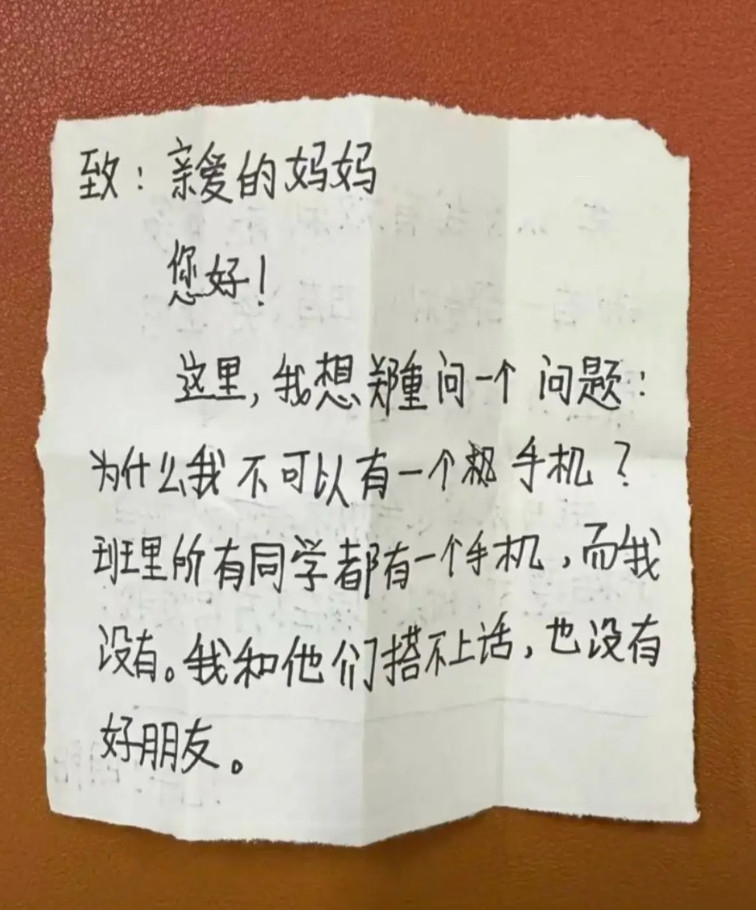 致：亲爱的妈妈
您好！
这里，我想郑重问一个问题：
为什么我不可以有一个手机？
班里所有同学都有一个手机，而我
没有。我和他们搭不上话，也没有
好朋友。